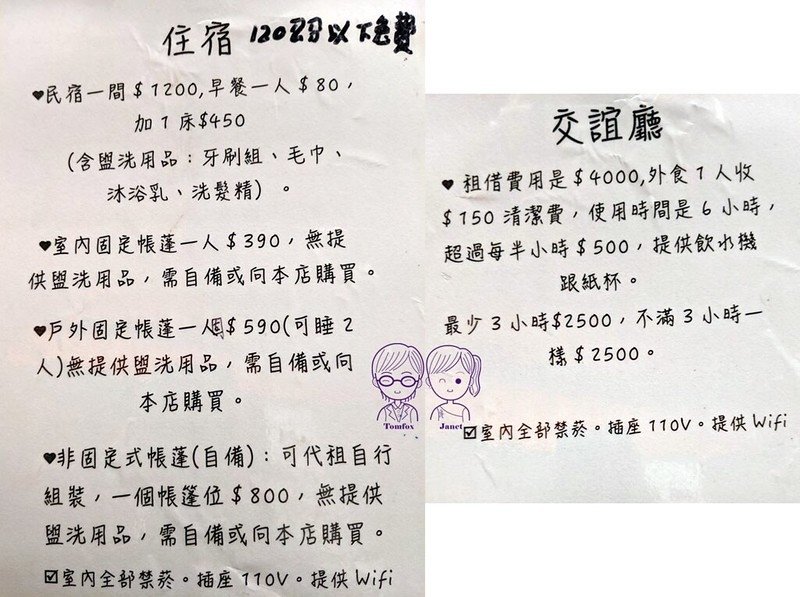 住宿 120公分以下免費
♥民宿一間$1200,早餐一人$80,
加1床$450
(含盥洗用品：牙刷組、毛巾、
沐浴乳、洗髮精)。
♥室內固定帳蓬一人$390，無提
供盥洗用品，需自備或向本店購買。
♥戶外固定帳蓬一個$590(可睡2
人)無提供盥洗用品，需自備或向
本店購買。
♥非固定式帳蓬(自備)：可代租自行
組裝，一個帳篷位$800，無提供
盥洗用品，需自備或向本店購買。
☑室內全部禁菸。插座110V。提供Wifi
交誼廳
♥租借費用是$4000,外食1人收
$150清潔費，使用時間是6小時，
超過每半小時$500，提供飲水機
跟紙杯。
最少3小時$2500，不滿3小時一
樣$2500。
☑室內全部禁菸。插座110V。提供Wifi
Tomfox
Janet